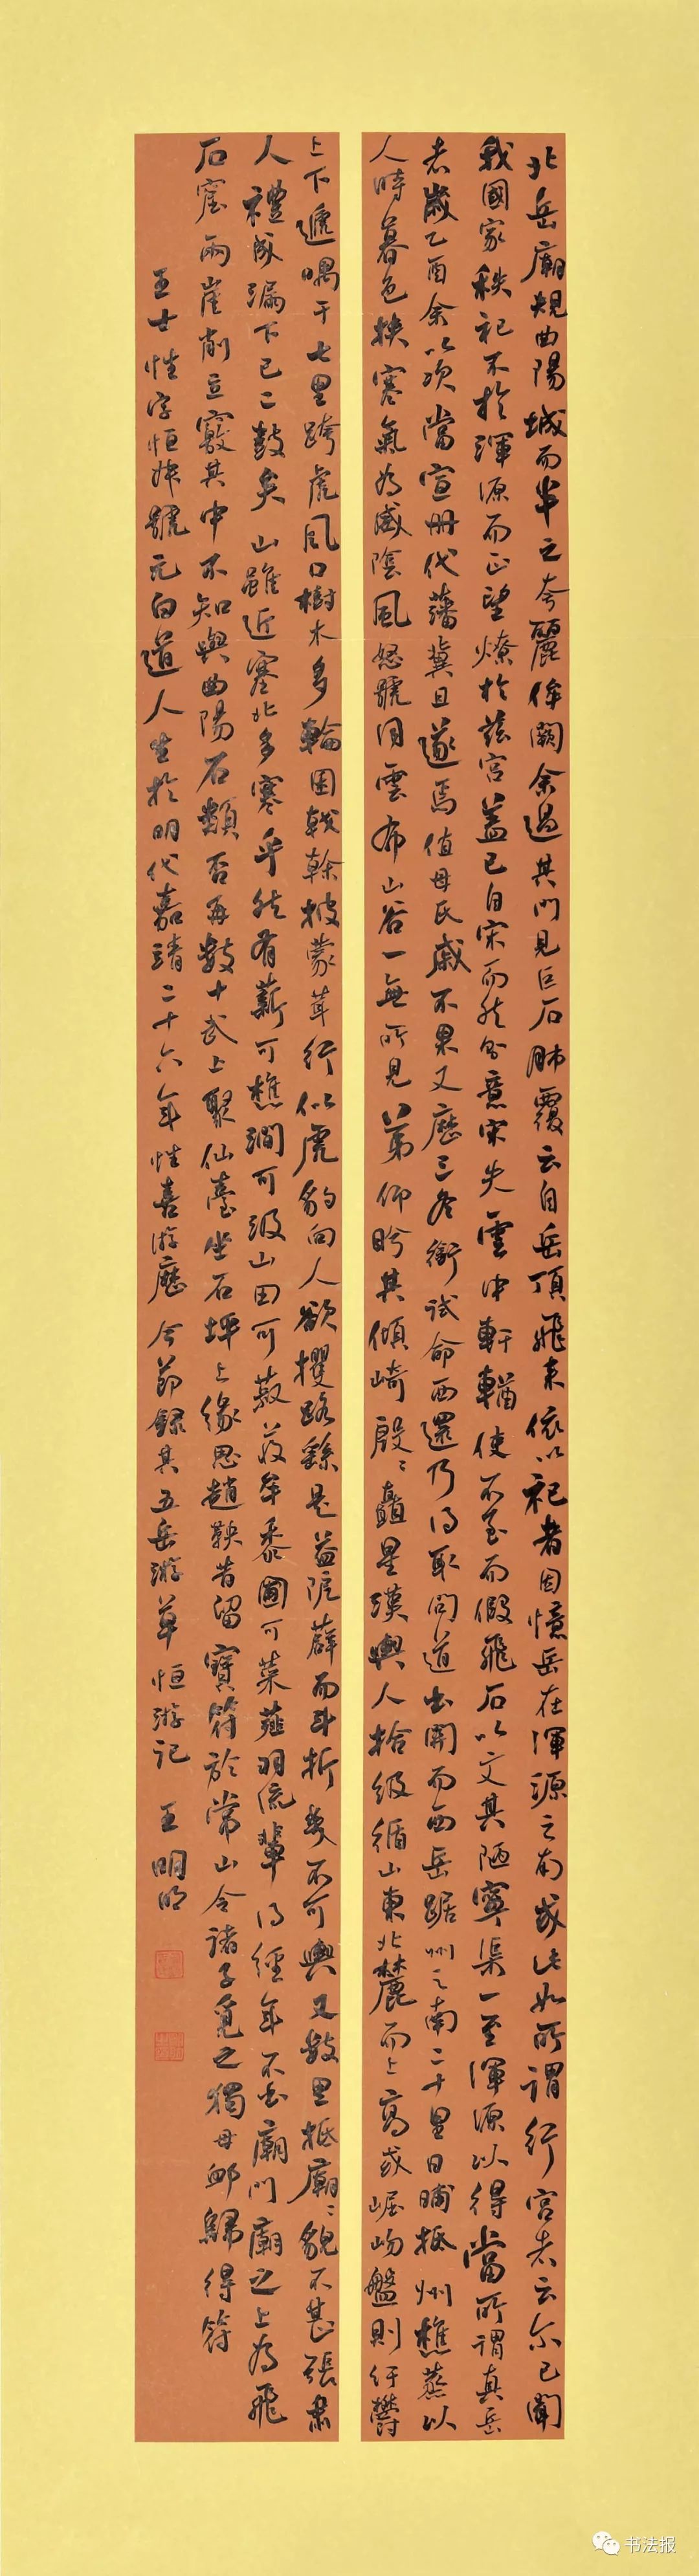 北岳廟規曲陽城而半之夸麗侔闕余過其門見巨石肺覆云自岳頂飛來依以祀者因憶岳在渾源之南或此如所謂行宮者云尔已聞
我國家秩祀不於渾源而正望燎於茲宮蓋已自宋而然余意宋失雲中軒輶使不至而假飛石以文其陋寧渠一至渾源以得當所謂真岳
者歲乙酉余以次當宣冊代藩冀且遂焉值母氏戚不果又歷三冬銜試命西還乃得取間道出關而西岳踞州之南二十里日晡抵州樵蒸以
人時暮色挾寒氣為威陰風怒號同雲布山谷一無所見第仰盻其傾崎殷〻矗星漢輿人拾級循山東北麓而上高或崛岉盤則紆鬱
上下遞喁于七里跨虎風口樹木多輪囷戟幹披蒙茸行似虎豹向人欲攫路繇是益阨薜而斗折輿不可輿又數里抵廟〻貌不甚張肅
人禮成漏下已二鼓矣山雖近塞北多寒乎然有薪可樵澗可汲山田可藝蔬牟黍圃可菜薤羽流輩得經年不出廟門廟之上為飛
石窟兩崖削立竅其中不知與曲陽石類否再數十武上聚仙臺坐石坪上緣思趙鞅昔留寶符於常山令諸子覓之獨毋卹歸得符
王士性字恒叔號元白道人生於明代嘉靖二十六年性喜游歷今節錄其五岳游草恒游記 王明明
书法报